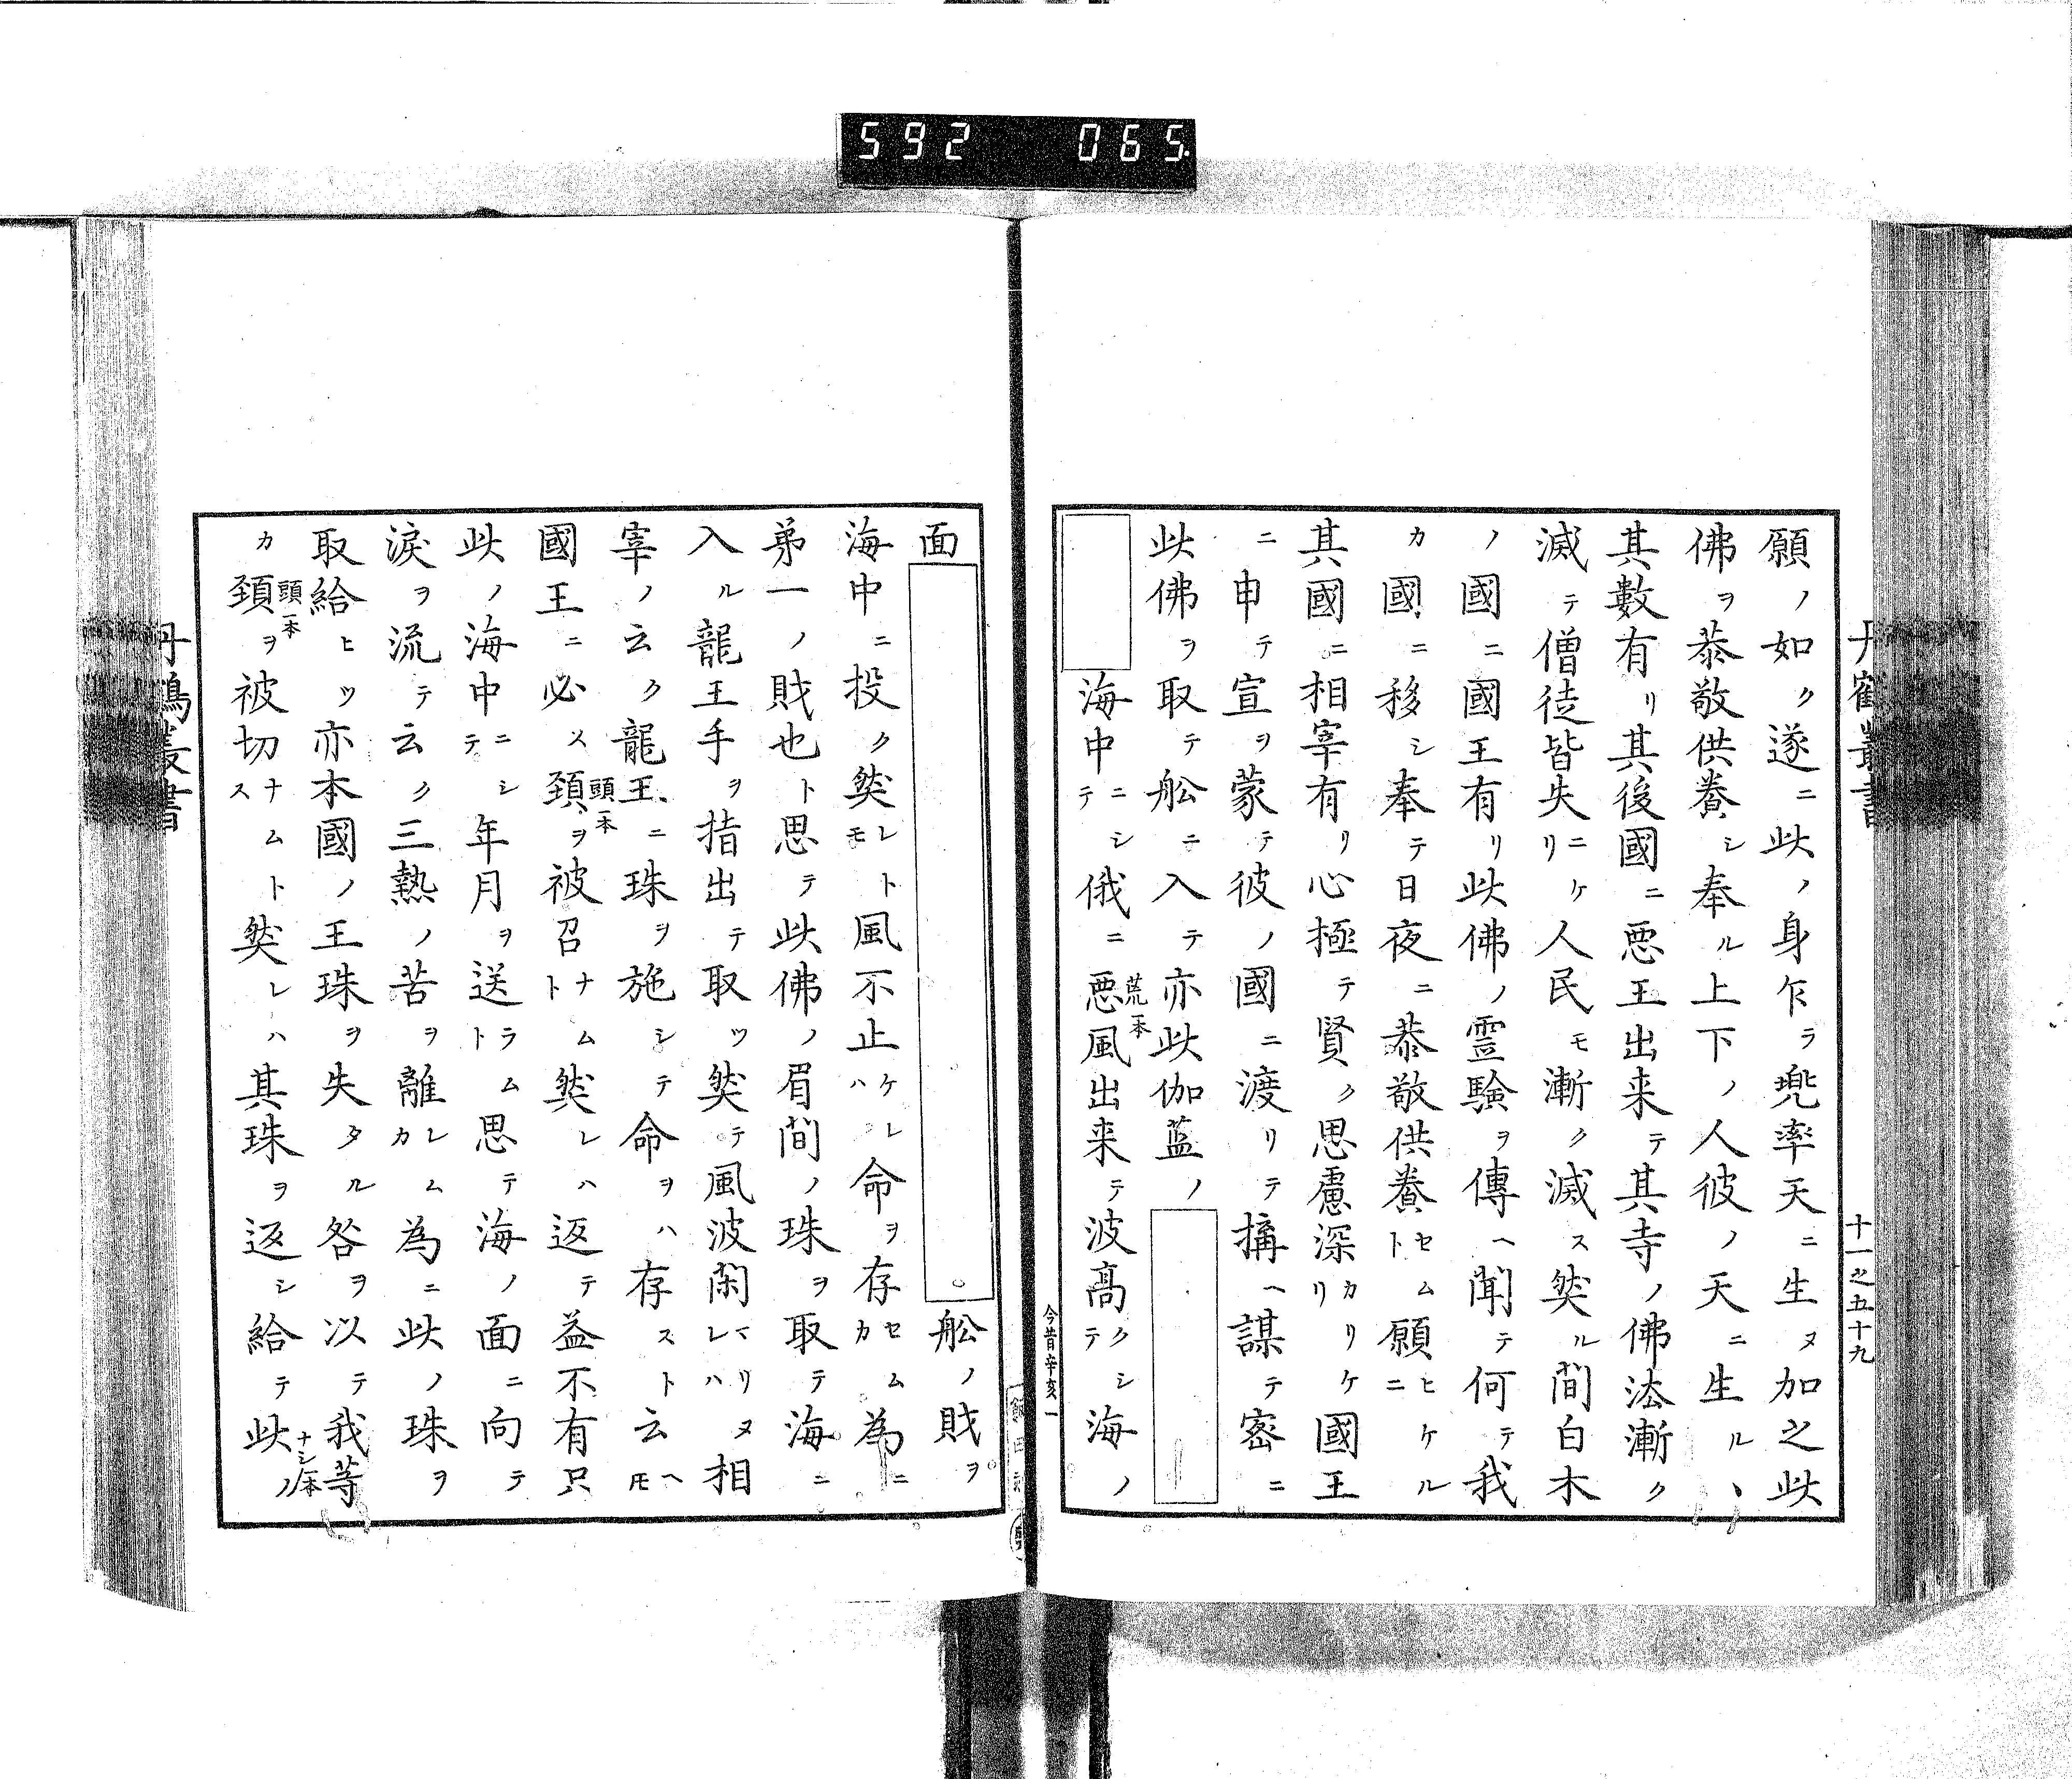 592 065
丹鶴叢書
十一之五十九
願ノ如ク遂ニ此ノ身乍ラ兜率天ニ生ヌ加之此
佛ヲ恭敬供養シ奉ル上下ノ人彼ノ天ニ生ル、
其數有リ其後國ニ悪王出来テ其寺ノ佛法漸ク
滅テ僧徒皆失ニケリ人民モ漸ク滅ス㷡ル間白木
ノ國ニ國王有リ此佛ノ霊験ヲ傳ヘ聞テ何テ我
カ國ニ移シ奉テ日夜ニ恭敬供養セムト願ヒケルニ
其國ニ相宰有リ心極テ賢ク思慮深カリケリ國王
ニ申テ宣ヲ蒙テ彼ノ國ニ渡リテ搆ヘ謀テ密ニ
此佛ヲ取テ舩ニ入テ亦此伽藍ノ
海中ニシテ俄ニ悪荒一本風出来テ波高クシテ海ノ
今昔辛亥一
面舩ノ賊ヲ
海中ニ投ク㷡レトモ風不止ケレハ命ヲ存セムカ為ニ
弟一ノ賊也ト思テ此佛ノ眉間ノ珠ヲ取テ海ニ
入ル龍王手ヲ指出テ取ツ㷡テ風波閑マリヌレハ相
宰ノ云ク龍王ニ珠ヲ施シテ命ヲハ存ストト云ヘ𪜈
國王ニ必ス頚頭一本ヲ被召ナムト㷡レハ返テ益不有只
此ノ海中ニシテ年月ヲ送ラムト思テ海ノ面ニ向テ
淚ヲ流テ云ク三熱ノ苦ヲ離レムカ為ニ此ノ珠ヲ
取給ヒツ亦本國ノ王珠ヲ失タル咎ヲ以テ我等
カ頚頭一本ヲ被切ナムトス㷡レハ其珠ヲ返シ給テ此ノナシ一本
丹鶴叢書